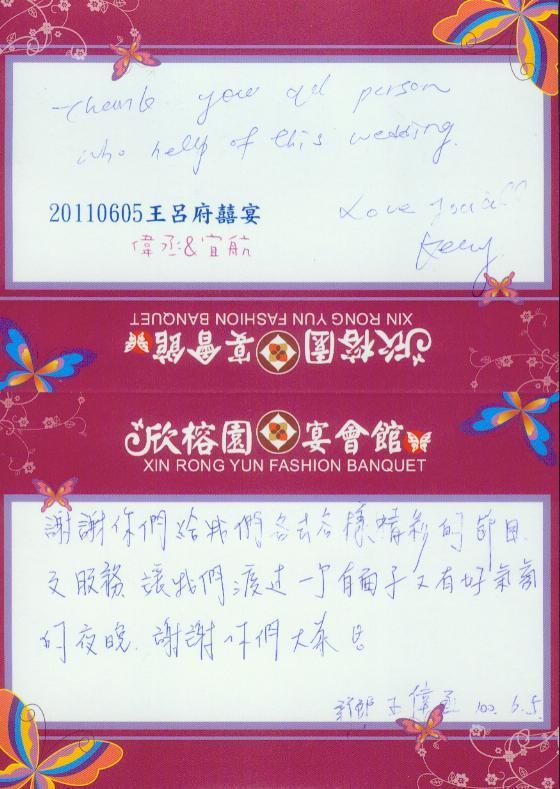 Thank you all person
who help of this wedding.
20110605王呂府囍宴
偉丞&宜航
Love you all
XIN RONG YUN FASHION BANQUET
欣榕園 宴會館
欣榕園 宴會館
XIN RONG YUN FASHION BANQUET
謝謝你們給我們各式各樣精彩的節目
及服務 讓我們渡过一个有面子又有好氣氛
的夜晚. 謝謝你們大家
新郎 王偉丞 100. 6. 5.